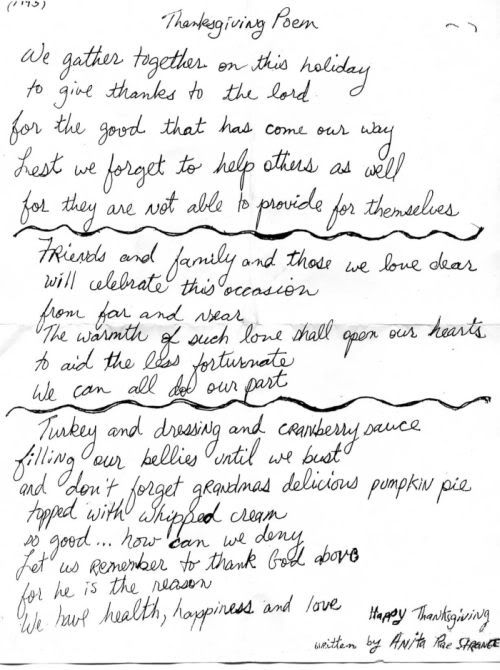 (1993)
Thanksgiving Poem
We gather together on this holiday
to give thanks to the lord
for the good that has come our way
Lest we forget to help others as well
for they are not able to provide for themselves
FRiends and family and those we love dear
will celebrate this occasion
from far and near
The warmth of such love shall open our hearts
to aid the less fortunate
We can all do our part
Turkey and dressing and cranberry sauce
filling our bellies until we bust
and don't forget grandmas delicious pumpkin pie
topped with whipped cream
so good... how can we deny
Let us Remember to thank God above
for he is the reason
We have health, happiness and love
Happy Thanksgiving
written by Anita Rae Strange